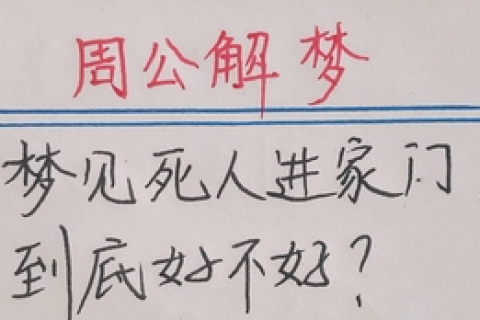 周公解梦
梦见死人进家门
到底好不好?